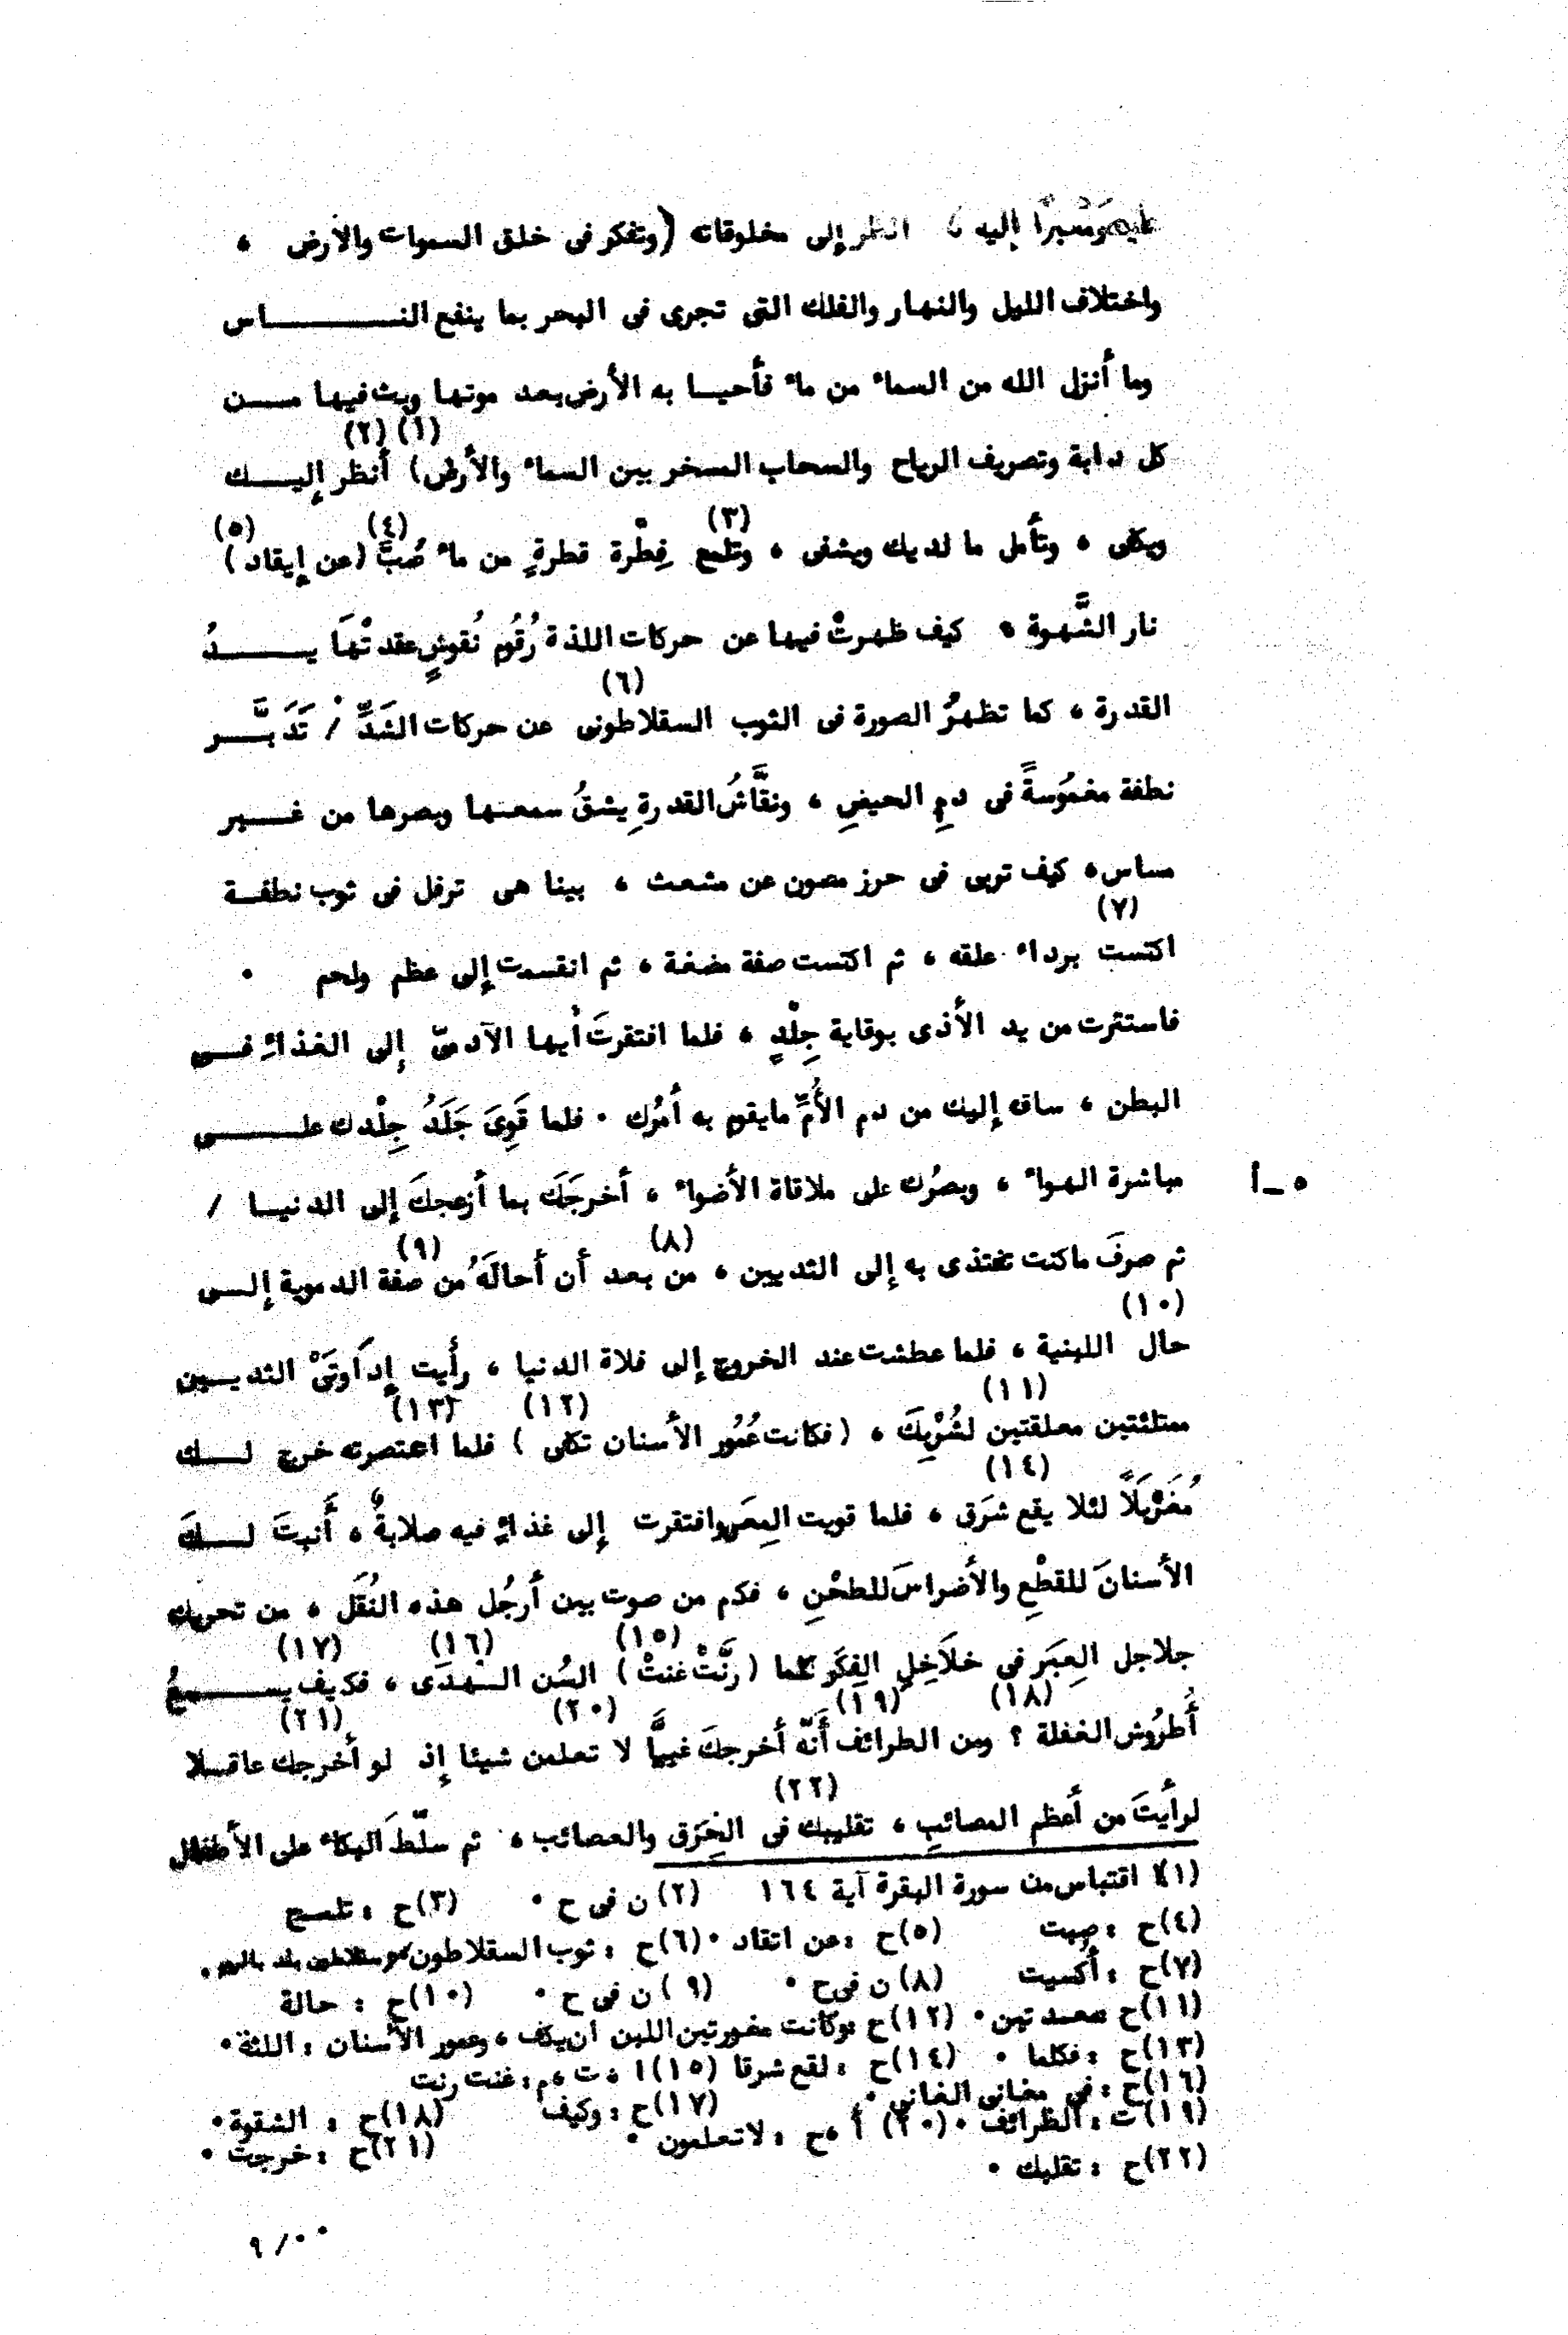 إليه ، انظر إلى مخلوقاته (وتفكر فى خلق السموات والأرض ،
واختلاف الليل والنهار والفلك التى تجرى فى البحر بما ينفع النــــاس
وما أنزل الله من السماء من ماء فأحيــا به الأرض بعد موتها وبث فيها مــن
كل دابة وتصريف الرياح والسحاب المسخر بين السماء والأرض) (١) (٢) أنظر إليــك
ويكفى ، وتأمل ما لديك ويشفى ، وتلمع (٣) فِطْرة قطرةٍ من ماء صُبَّ (٤) (عن إيقاد) (٥)
نار الشَّهوة ، كيف ظهرتْ فيها عن حركات اللذة رُقُوم نُقوشٍ عقدتْهَا يــــدُ
القدرة ، كما تظهرُ الصورة فى الثوب السقلاطونى (٦) عن حركات الشَدِّ / تَدَبَّــر
نطفة مغمُوسةً فى دمِ الحيضِ ، ونقَّاشُ القدرةِ يشقُ سمعــها وبصرها من غــير
مساس ، كيف تربى فى حرز مصون عن مشعث ، بينا هى ترفل فى ثوب نطفــة
اكتست (٧) برداء علقه ، ثم اكتست صفة مضغة ، ثم انقسمت إلى عظم ولحم .
فاستترت من يد الأذى بوقاية جِلْدٍ ، فلما افتقرتَ أيها الآدمىّ إلى الغذاءِ فــى
البطن ، ساق إليك من دم الأُمِّ مايقوم به أمْرُك . فلما قَوِىَ جَلَدُ جِلْدك علــــى
مباشرة الهواء ، وبصرُك على ملاقاة الأضواء ، أخرجَكَ بما أزعجكَ إلى الدنيــا / ٥ــأ
ثم صرفَ ماكنت تغتذى به إلى الثديين ، (٨) من بعد أن أحالَهُ (٩) من صفة الدموية إلــى
حال (١٠) اللبنية ، فلما عطشت عند الخروج إلى فلاة الدنيا ، رأيت إداوتَىْ الثديــين
ممتلئتين معلقتين (١١) لشُرْبِكَ ، (فكانت عُمُور الأسنان تكفى) (١٢) فلما (١٣) اعتصرته خرج لــك
مُغَرْبَلاً لئلا يقع شَرَق (١٤) ، فلما قويت المِعَى وافتقرت إلى غذاءٍ فيه صلابةٌ ، أَنبتَ لــكَ
الأسنانَ للقطْعِ والأضراسَ للطحْنِ ، فكم من صوت بين أرجُل هذه النُقَل ، من تحريك
جلاجل العِبَر فى خلَاخِلِ الفِكَر كلما (رنَّتْ غنتْ) (١٥) السُن الــهدَى (١٦) ، فكيف (١٧) يســـمعُ
أُطرُوش الغفلة (١٨) ؟ ومن الطرائف (١٩) أَنَّه أخرجكَ غبيًّا لا تعلمن (٢٠) شيئا إذ لو أخرجك (٢١) عاقــلا
لرأيتَ من أعظم المصائبِ ، تقليبك (٢٢) فى الخِرَق والعصائب ، ثم سلّط البكاء على الأطفال
(١) اقتباس من سورة البقرة آية ١٦٤ (٢) ن فى ح . (٣)ح : تلمــح
(٤)ح : صبت (٥)ح : عن اتقاد . (٦)ح : ثوب السقلاطون
(٧)ح : أكسيت (٨) ن فى ح . (٩) ن فى ح . (١٠)ح : حالة
(١١)ح معــدتين . (١٢)ح وكانت اللبن ان يكف ، وعمور الأسنان : اللثة .
(١٣)ح : فكلما . (١٤)ح : لقع شرقا (١٥)ا ، ت ، م : غنت رنت
(١٦)ح : فى مغانى الغانى . (١٧)ح : وكيف (١٨)ح : الشقوة .
(١٩) ت : الظرائف . (٢٠) أ ، ح : لاتعلمون . (٢١)ح : خرجت .
(٢٢)ح : تقلبك .
٩/٠٠